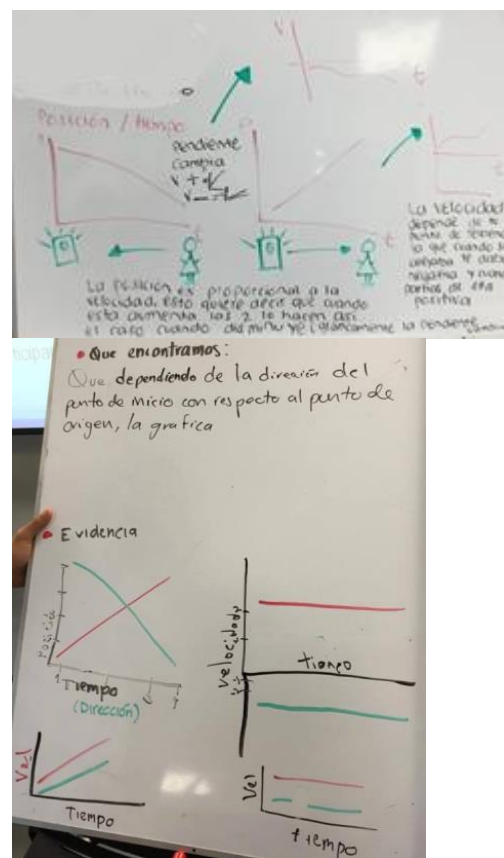 V
t
Posición / tiempo
pendiente
cambia
V +
V -
t
t
t
La velocidad
depende de
punto de
lo que cuando
negativa y
partias de esa
positiva
La posición es proporcional a la
velocidad, esto quiere decir que cuando
esta aumenta las 2 lo hacen asi
el caso cuando disminuye graficamente la pendiente
• Que encontramos:
Que dependiendo de la dirección del
punto de inicio con respecto al punto de
origen, la grafica
• Evidencia
Posición
Tiempo
(Dirección)
Velocidad
tiempo
Vel
Tiempo
Vel
tiempo